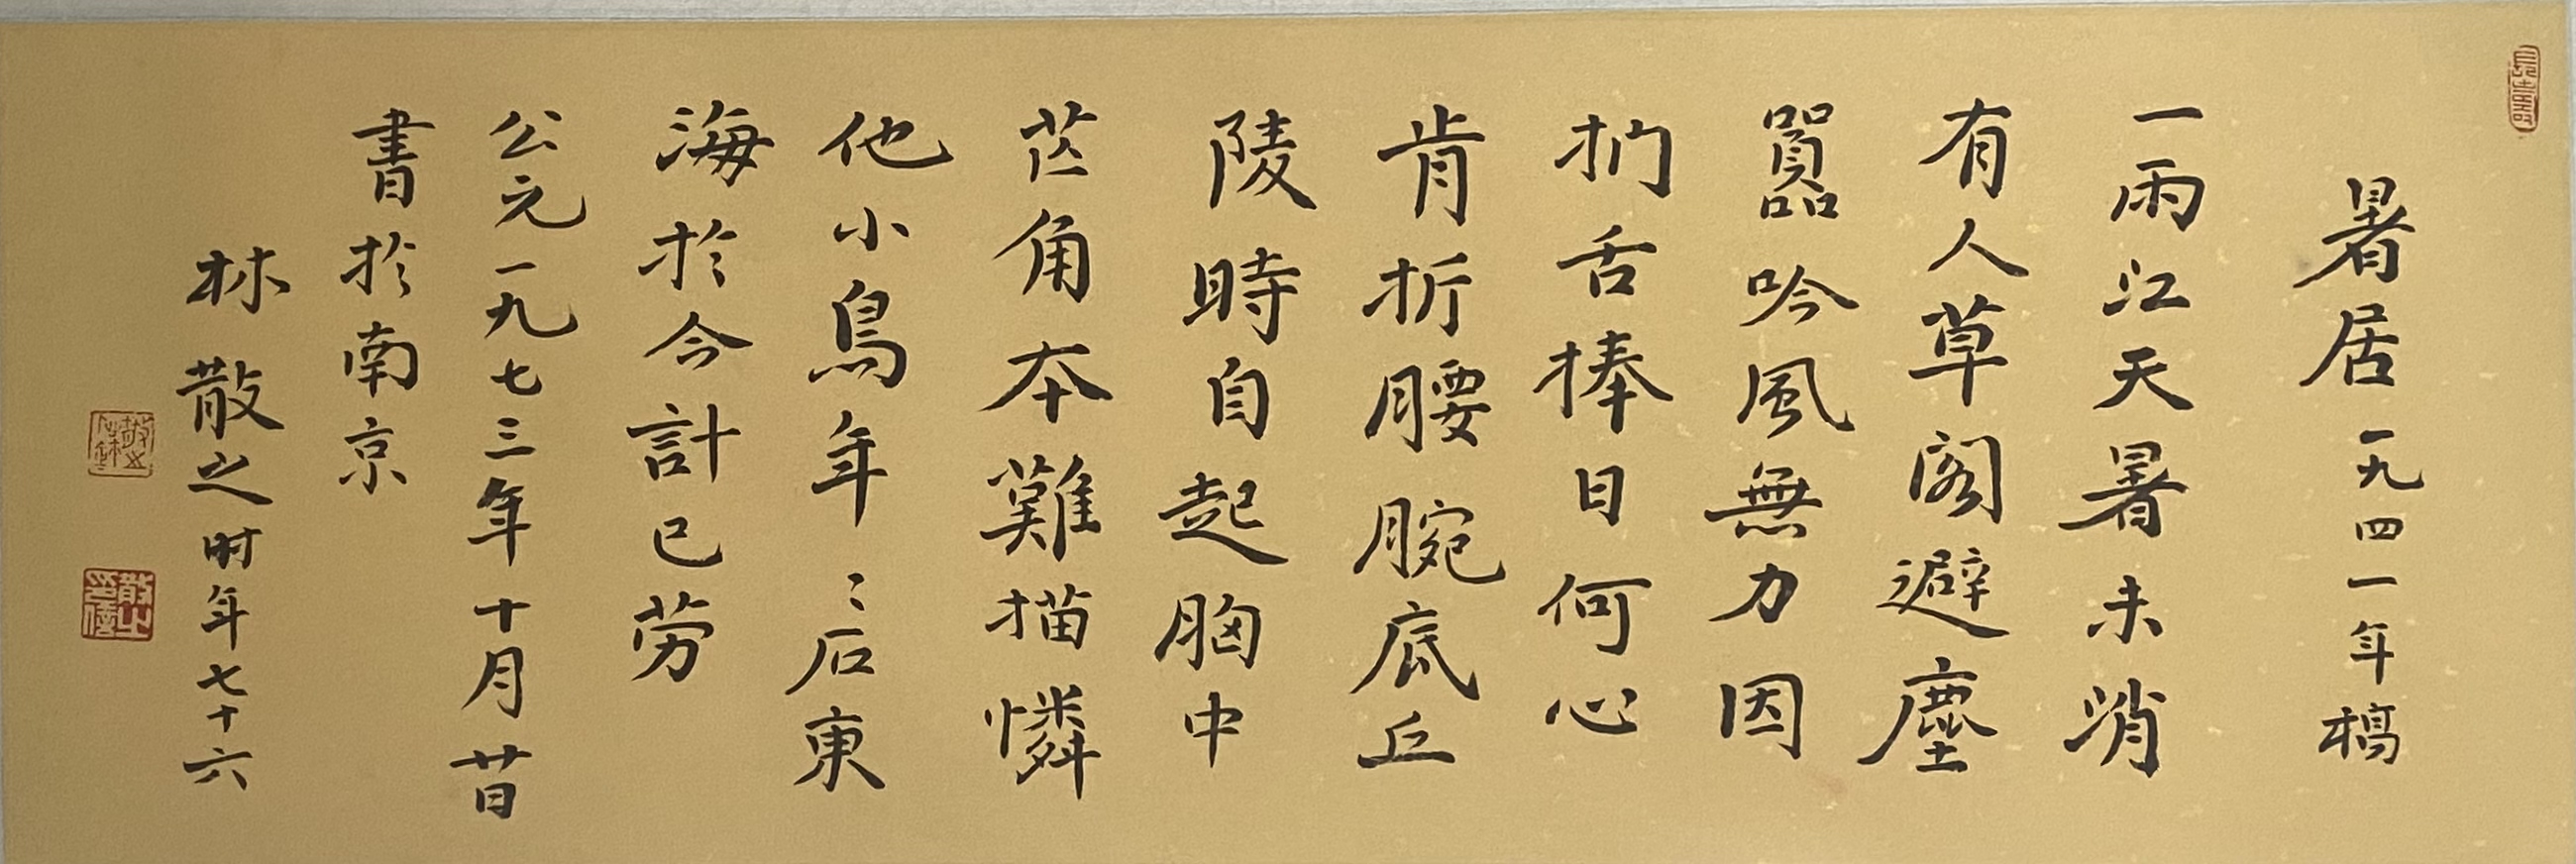 暑居 一九四一年稿
一雨江天暑未消
有人草閣避塵
囂吟風無力因
扪舌捧日何心
肯折腰腕底丘
陵時自起胸中
芒角本難描憐
他小鳥年〻石東
海於今計已劳
公元一九七三年十月昔
書於南京
林散之时年七十六
長壽
散之信印